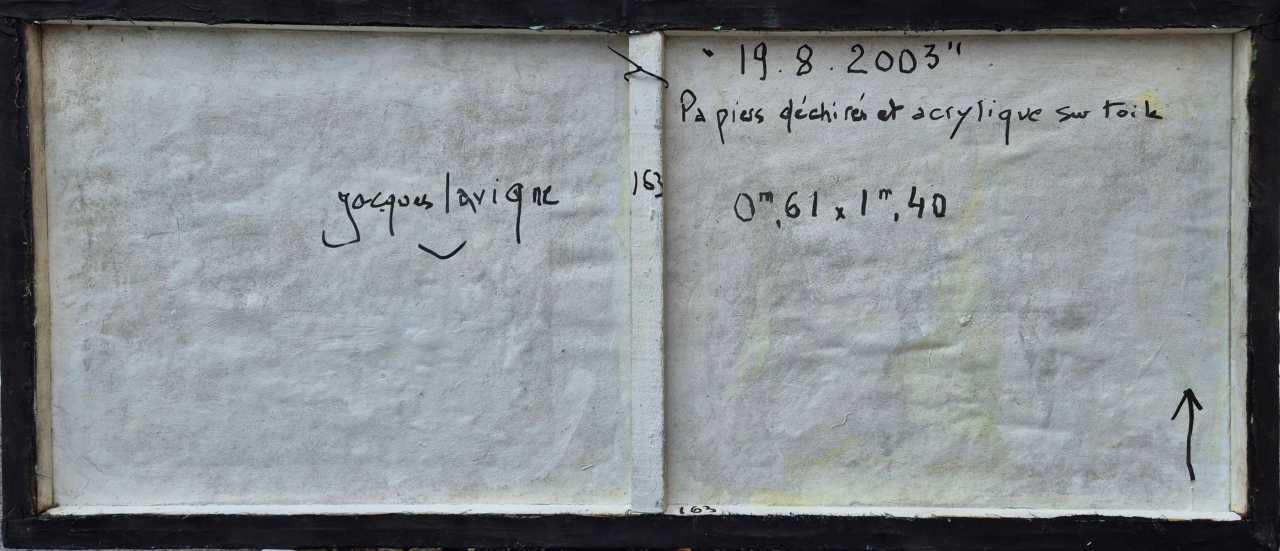 " 19.8.2003"
Papiers déchirés et acrylique sur toile
jacques lavigne
163
0ᵐ,61 x 1ᵐ,40
163